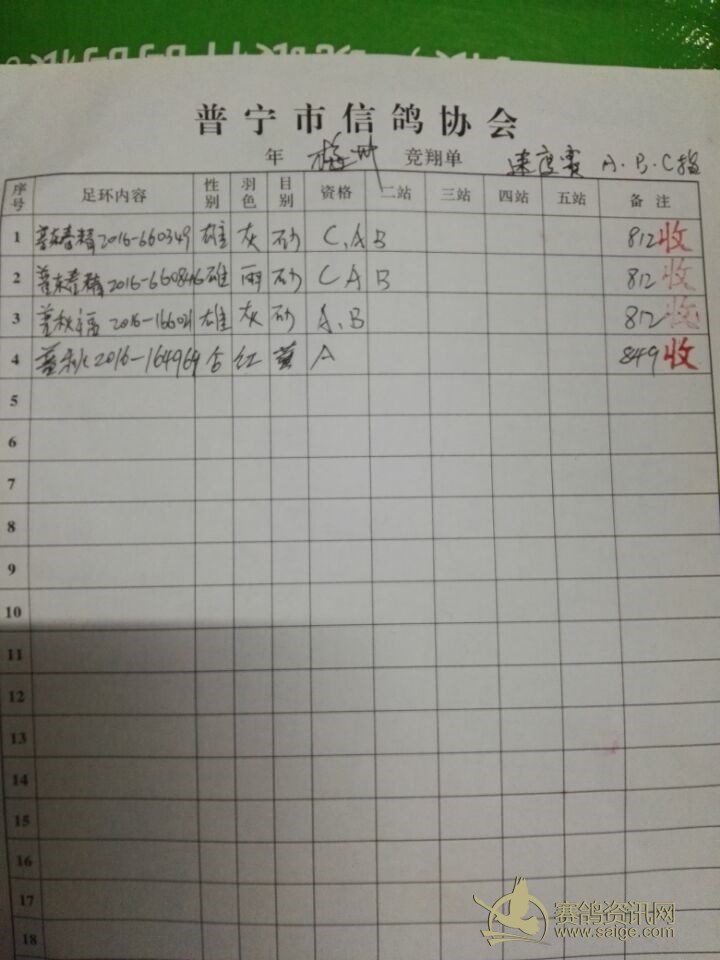 普宁市信鸽协会
年 梅州 竞翔单 速度赛 A.B.C指
序号 足环内容 性别 羽色 目别 资格 二站 三站 四站 五站 备注
1 2016-660349 雄 灰 砂 C.A B 812 收
2 2016-660846 雄 雨 砂 C A B 812 收
3 2016-16602 雄 灰 砂 A.B 812 收
4 2016-164969 红 黄 A 849 收
5
6
7
8
9
10
11
12
13
14
15
16
17
18
赛鸽资讯网
www.saigc.com